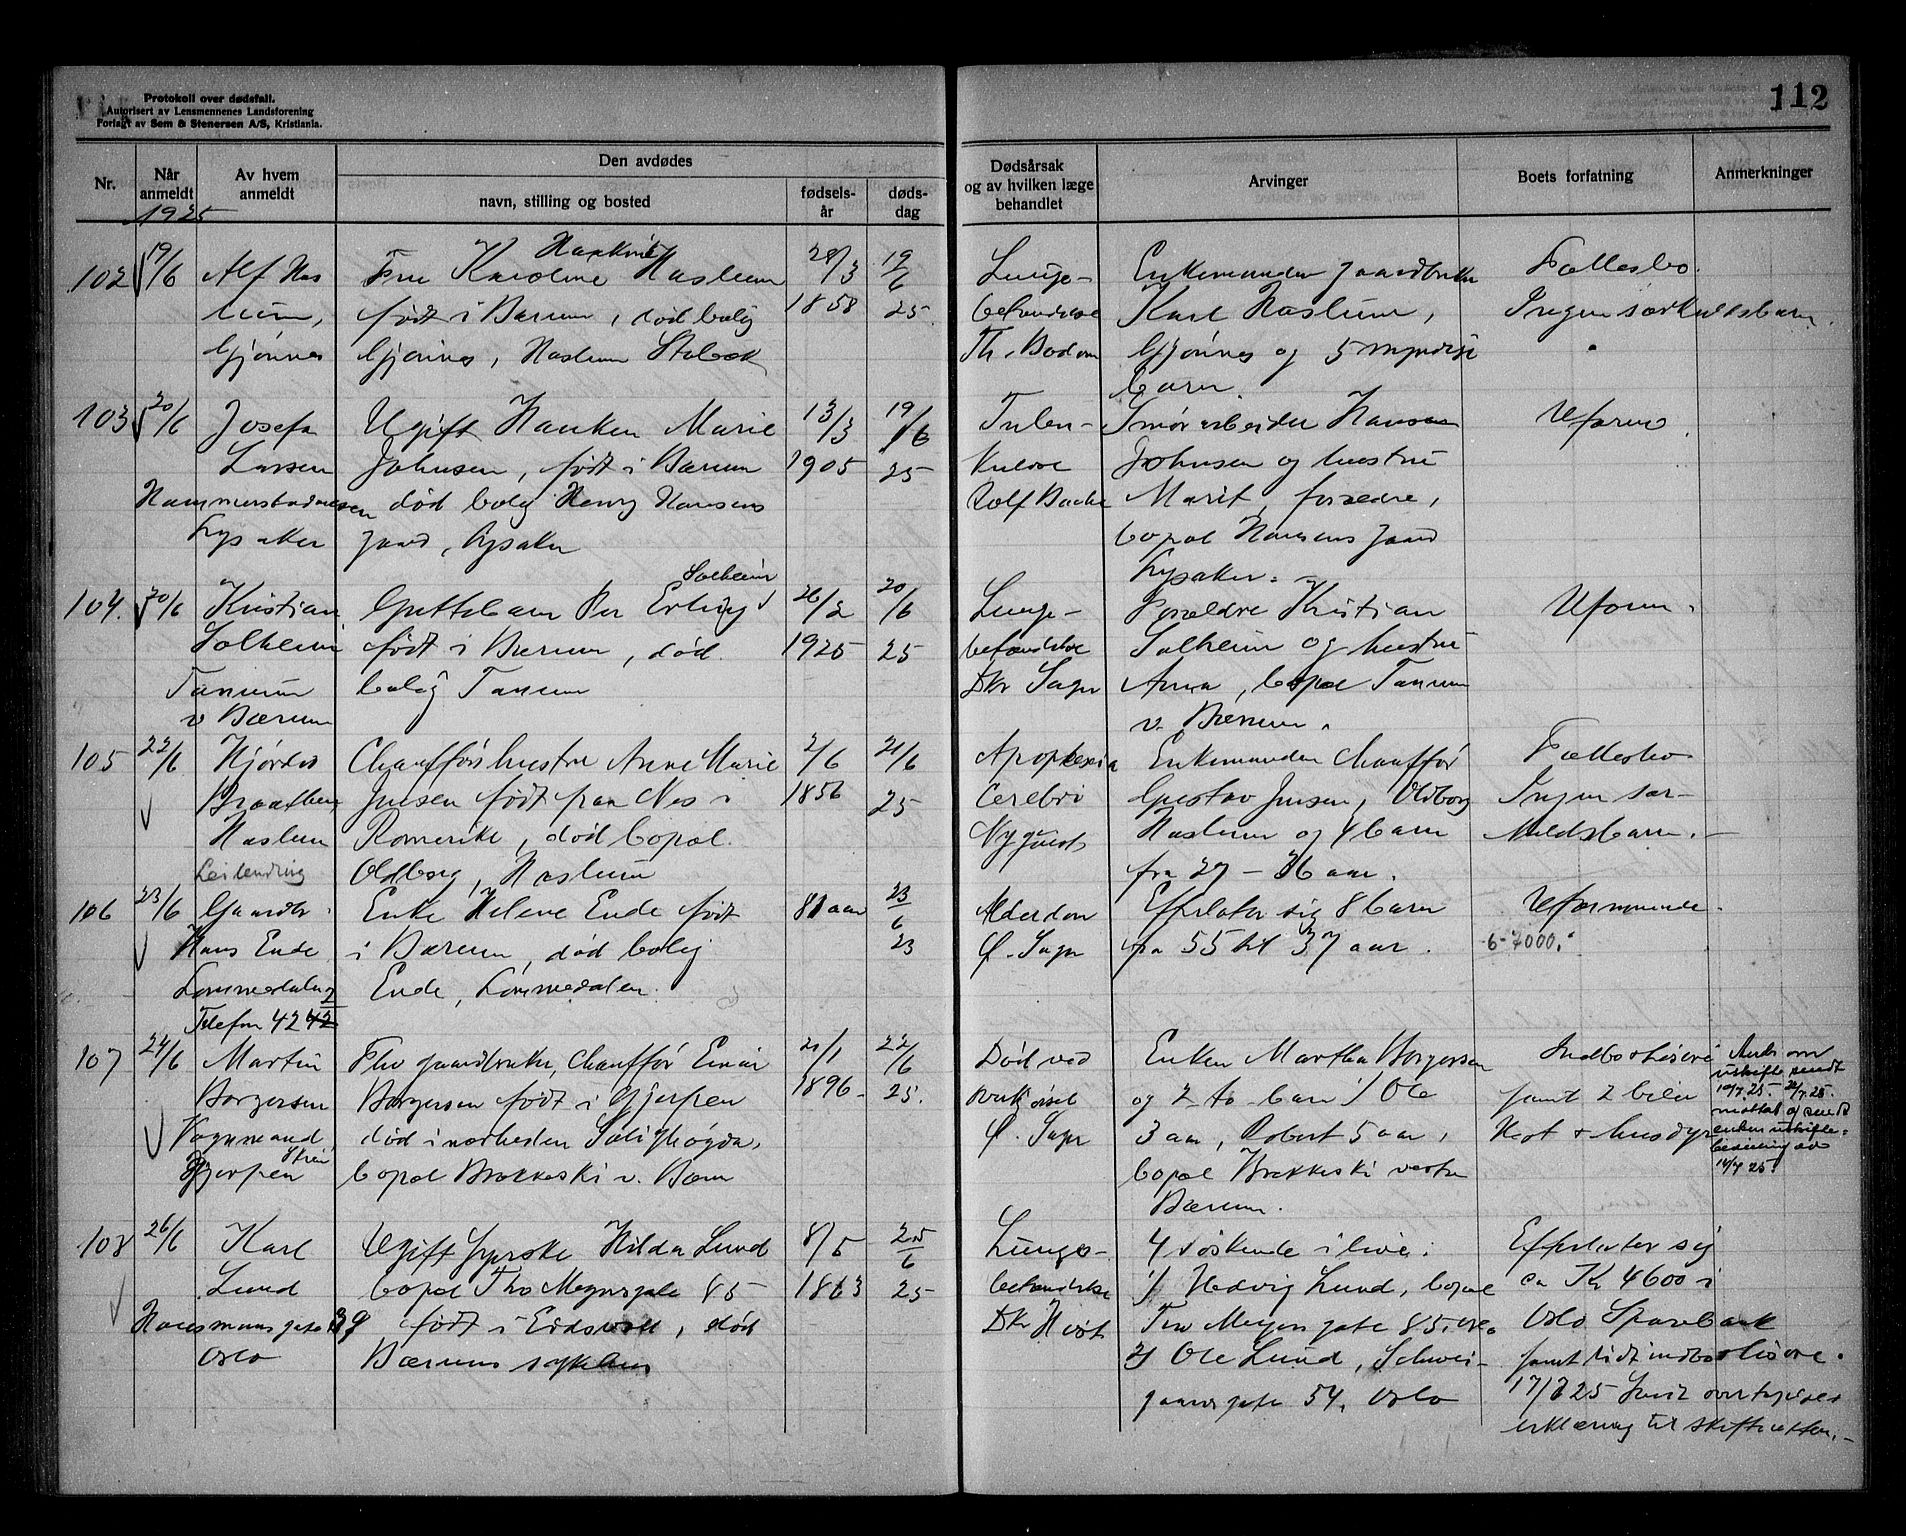 Protokoll over dødsfall.
Autorisert av Lensmennenes Landsforening
Forlagt av Sem & Stenersen A/S, Kristiania.
112
Nr.
Når anmeldt
Av hvem anmeldt
Den avdødes
navn, stilling og bosted
fødsels-år
døds-dag
Dødsårsak og av hvilken læge behandlet
Arvinger
Boets forfatning
Anmerkninger
1925
102 19/6 Alf Has Fru Karoline Haslum 28/3 19/6 Lunge- Enkemanden gaardbruker Fællesbo.
lum, født i Bærum, død bolig 1858 25 betændelse Karl Haslum, Ingen særkuldsbarn.
Gjønnes Gjønnes, Haslum Stabæk Th. Bodom Gjønnes og 5 myndige
barn.
103 20/6 Josefa Ugift Hauken Marie 13/3 19/6 Tuber- Hansen Uformu.
Larsen Johnsen, født i Bærum 1905 25 kulose Johnsen og hustru
død bolig Henry Hansens Rolf Backe Marit, forældre,
Lysaker gaard, Lysaker bopæl Hansens gaard
Lysaker.
Solheim
104. 20/6 Kristian Guttebarn Per Erling 26/2 20/6 Lunge- Forældre Kristian Uformu.
Solheim født i Bærum, død 1925 25 betændelse Solheim og hustru
Tanum bolig Tanum Dkr Sagr Anna, bopæl Tanum
v Bærum v. Bærum.
105 22/6 Hjørdis Chaufførhustru Anne Marie 2/6 21/6 Apoplexia Enkemanden Chauffør Fællesbo
Braathen Jensen født paa Nes i 1856 25 Cerebri Gustav Jensen, Oldborg Ingen sær-
Haslum Romerike, død bopæl Nyquist Haslum og 4 barn kuldsbarn.
Oldborg, Haslum fra 27 – 36 aar.
106 23/6 Gaardbr. Enke Helene Ende født 81 aar 23/6 Alderdom Efterlater sig 8 barn Uformuende.
Hans Ende i Bærum, død bolig 23 Ø. Sagr fra 55 til 37 aar. 6-7000.
Lommedalen Ende, Lommedalen.
Telefon 42 42
107 24/6 Martin Fhv gaardbruker, Chauffør Einar 21/1 22/6 Død ved Enken Martha Borgersen Indbo løsøre
Borgersen Borgersen født i Gjerpen 1896 25. og 2 to barn Ole samt 2 biler
Vognmand død i nærheden Solighøgda, Ø. Sagr 3 aar, Robert 5 aar, Hest + husdyr
Skien
Gjerpen bopæl Brekkeski v. Bærum bopæl Brekkeski vestre
Bærum.
108 26/6 Karl Ugift Syerske Hilda Lund 8/5 25/6 Lunge- 4 søskende i live: Efterlater sig
Lund bopæl Thv Meyersgate 85 1863 25 betændelse 1/ Hedvig Lund, bopæl ca Kr 4600 i
Hausmannsgate 39 født i Eidsvoll, død Dkr Tvv Meyers gate 85. Oslo Sparebank
Oslo Bærums sykehus 2/ Ole Lund, Schwei- samt lidt indbo løsøre.
gaards gate 54, Oslo 17/7 25
erklæring til skifteretten.